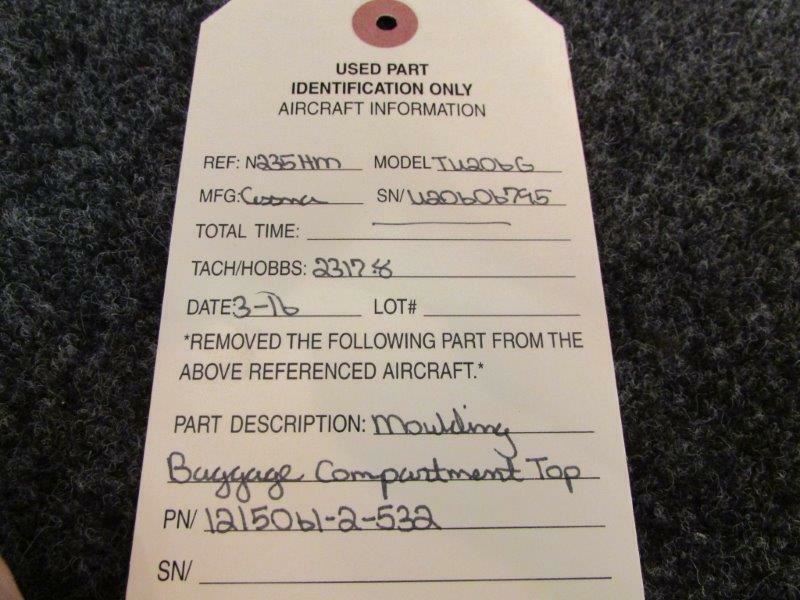 USED PART
IDENTIFICATION ONLY
AIRCRAFT INFORMATION
REF: N235HM MODEL TU206G
MFG: Cessna SN/ U20606795
TOTAL TIME:
TACH/HOBBS: 2317.8
DATE: 3-16 LOT#
*REMOVED THE FOLLOWING PART FROM THE
ABOVE REFERENCED AIRCRAFT.*
PART DESCRIPTION: Moulding
Baggage Compartment Top
PN/ 1215061-2-532
SN/